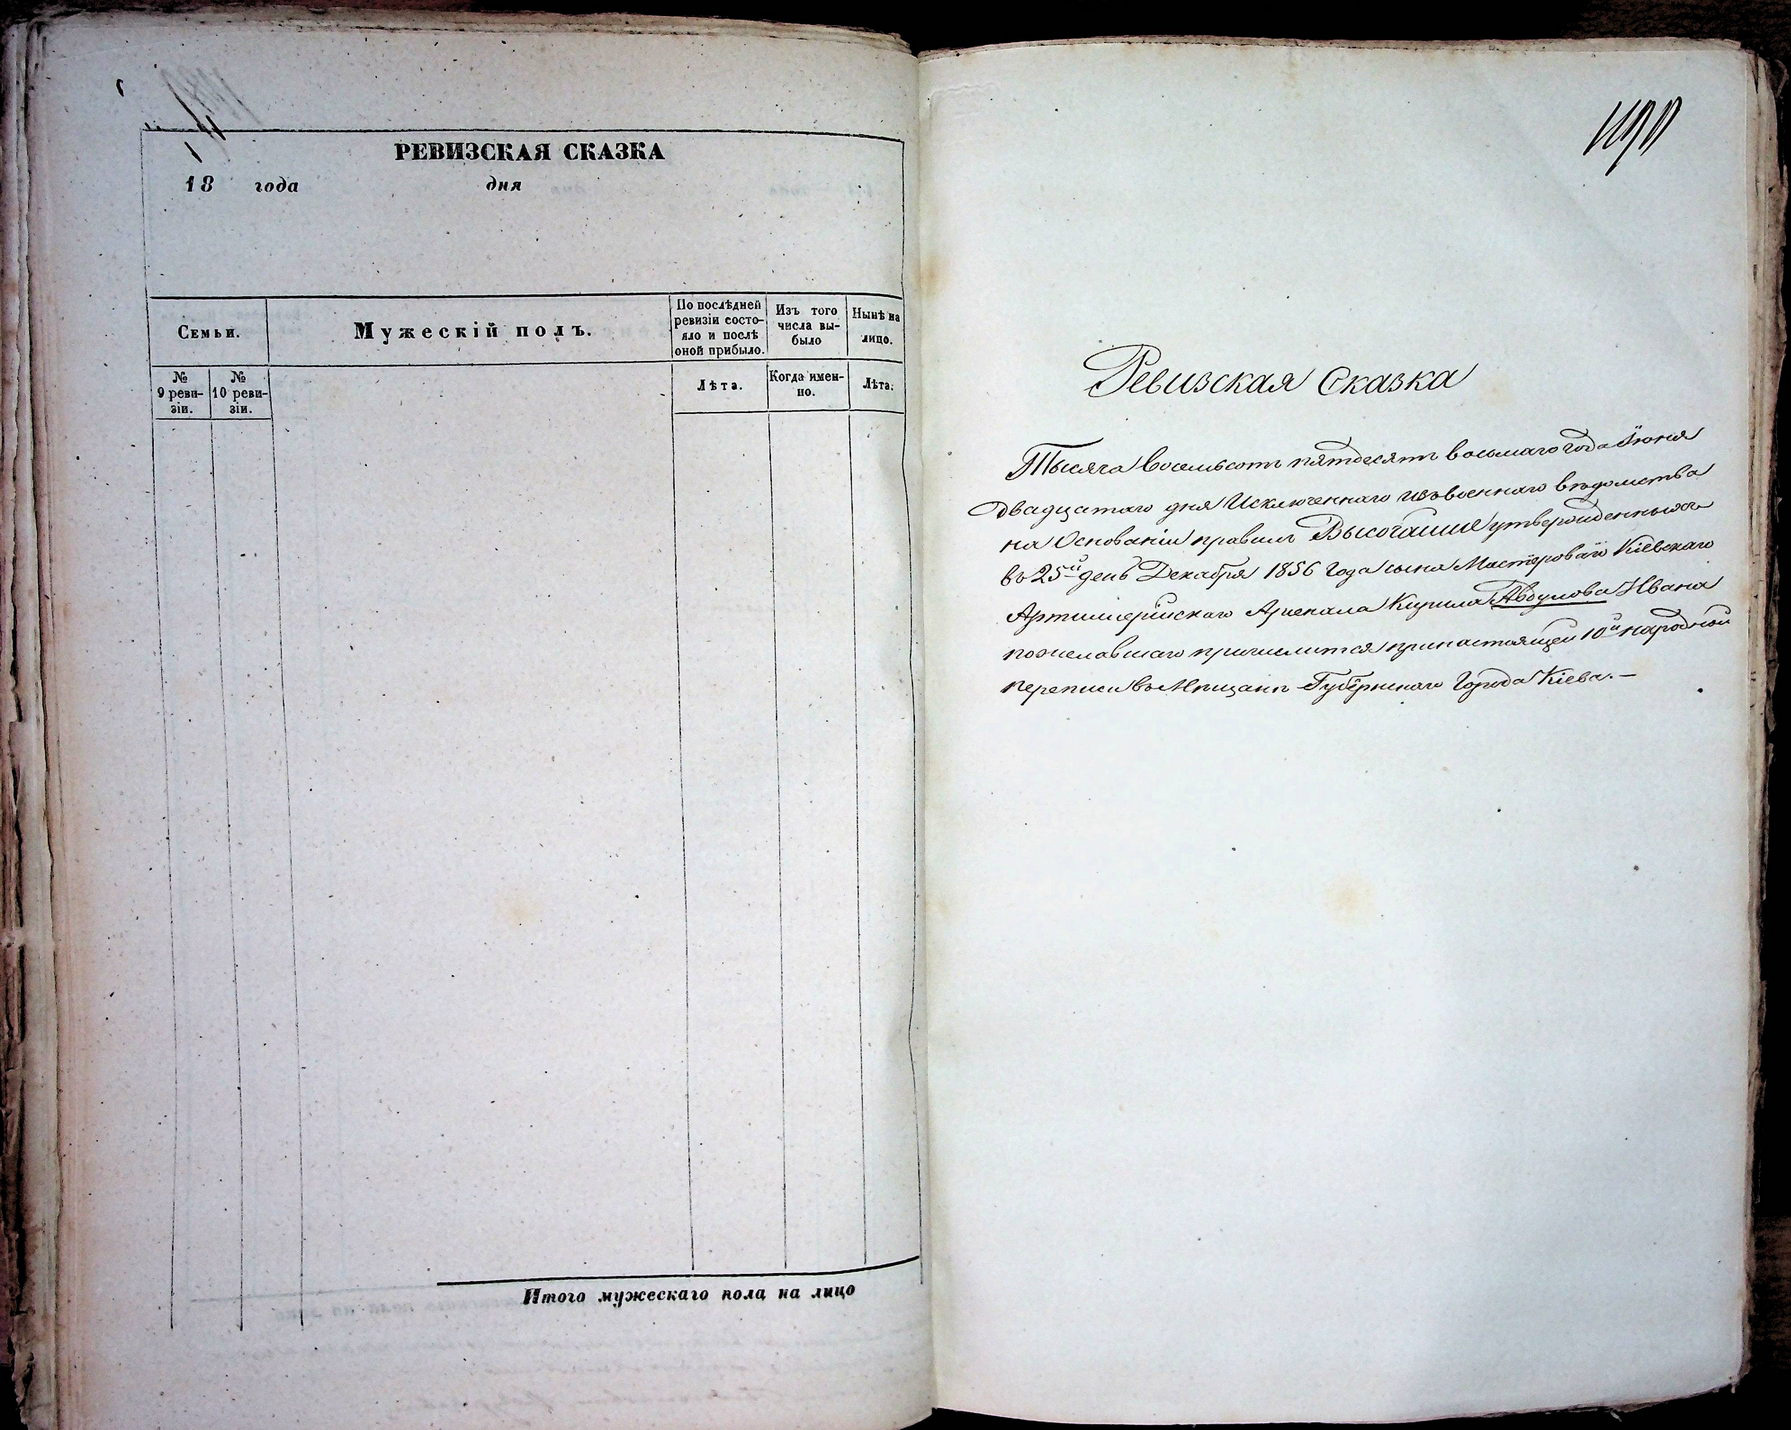 РЕВИЗСКАЯ СКАЗКА
18 года дня
Семьи.
Мужескій полъ.
По послѣдней
ревизіи состо-
яло и послѣ
оной прибыло.
Изъ того
числа вы-
было
Нынѣ на
лицо.
№
9 реви-
зіи.
№
10 реви-
зіи.
Лѣта.
Когда имен-
но.
Лѣта.
Итого мужескаго пола на лицо
Ревизская Сказка
Тысяча восемьсотъ пятдесятъ восьмаго года Іюня
двадцатаго дня Исключеннаго изъ военнаго вѣдомства
на Основаніи правилъ Высочайше утвержденныхъ
въ 25й день Декабря 1856 года сына Мастероваго Кіевскаго
Артиллерійскаго Арсенала Кирила Авдулова Ивана
пожелавшаго причислится при настоящей 10й народной
переписи въ Мѣщане Губернскаго Города Кіева.—